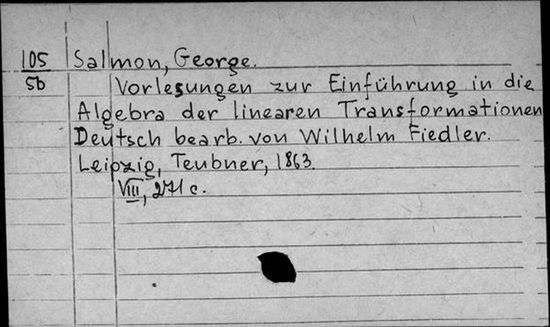 105 Salmon, George.
5b Vorlesungen zur Einführung in die
Algebra der linearen Transformationen
Deutsch bearb. von Wilhelm Fiedler.
Leipzig, Teubner, 1863.
VIII, 271 c.